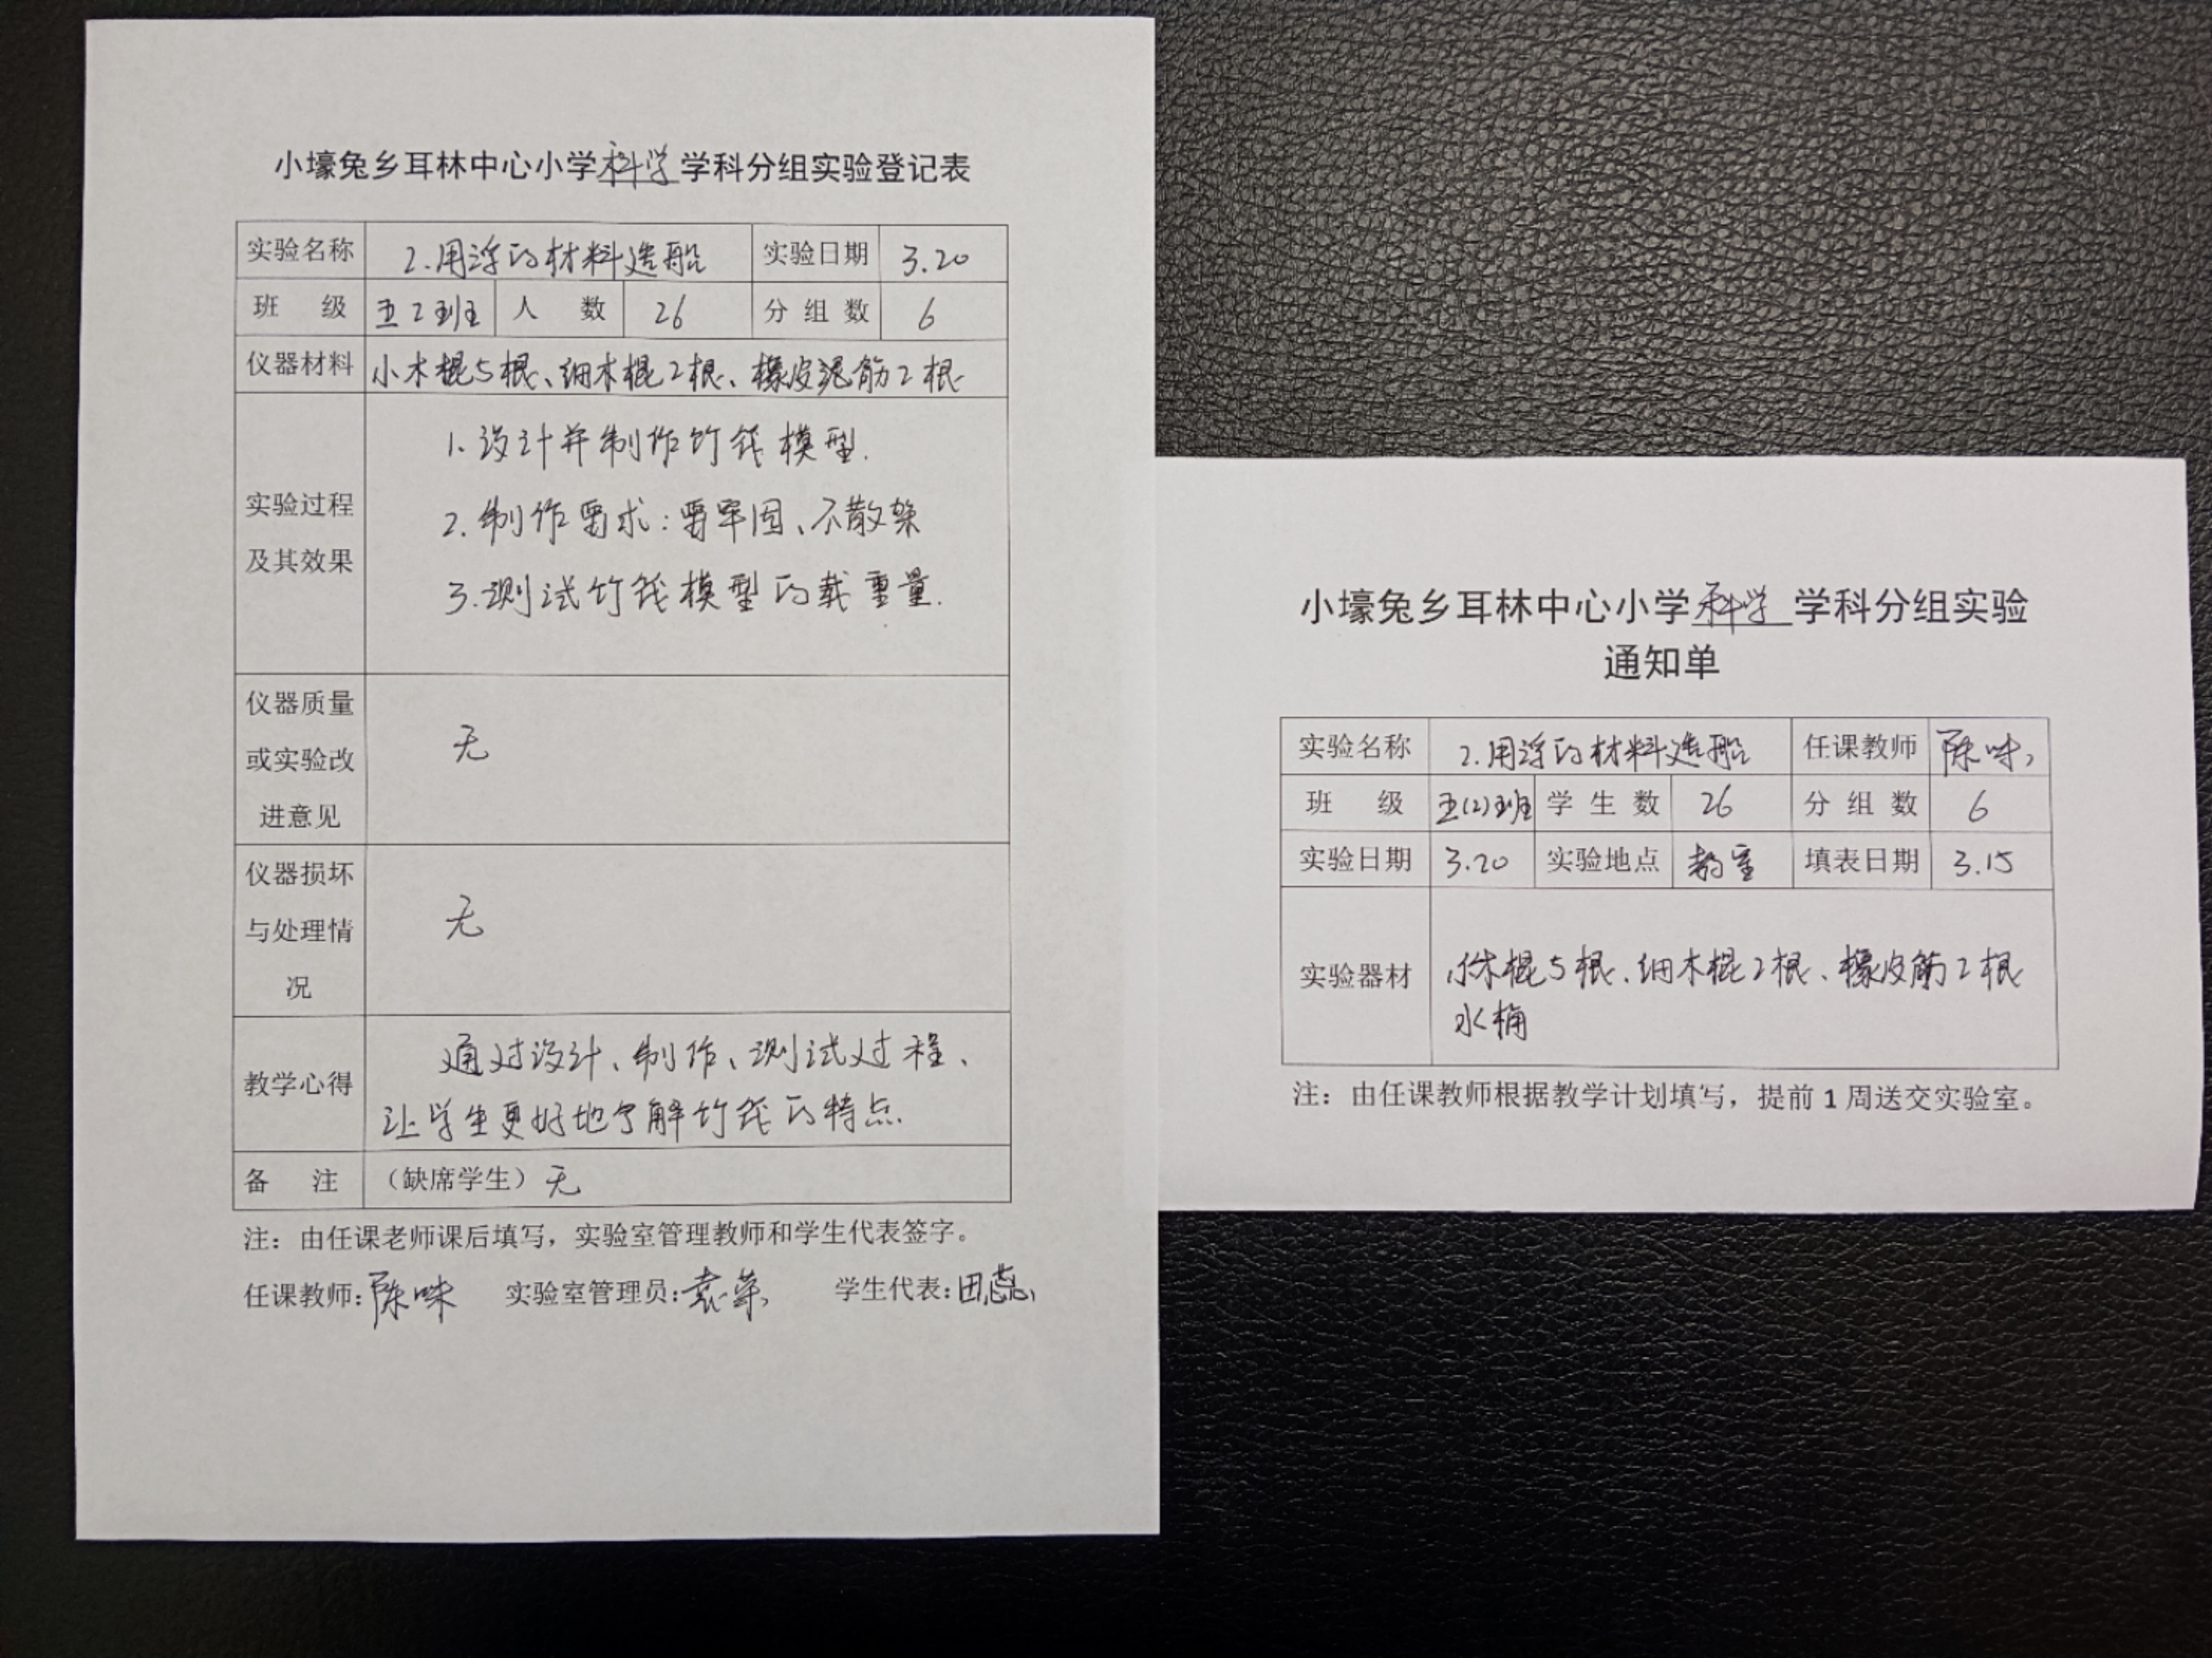 小壕兔乡耳林中心小学科学学科分组实验登记表
实验名称 2.用浮的材料造船 实验日期 3.20
班 级 五2班 人 数 26 分组数 6
仪器材料 小木棍5根、细木棍2根、橡皮泥筋2根
实验过程
及其效果
1.设计并制作竹筏模型.
2.制作要求:要牢固、不散架
3.测试竹筏模型的载重量.
仪器质量
或实验改
进意见
无
仪器损坏
与处理情
况
无
教学心得
通过设计、制作、测试过程、
让学生更好地了解竹筏的特点.
备 注 (缺席学生)无
注:由任课老师课后填写,实验室管理教师和学生代表签字。
任课教师:陈咪 实验室管理员:袁荣 学生代表:田蕊
小壕兔乡耳林中心小学科学学科分组实验
通知单
实验名称 2.用浮的材料造船 任课教师 陈咪
班 级 五(2)班 学生数 26 分组数 6
实验日期 3.20 实验地点 教室 填表日期 3.15
实验器材 小木棍5根、细木棍2根、橡皮筋2根
水桶
注:由任课教师根据教学计划填写,提前1周送交实验室。